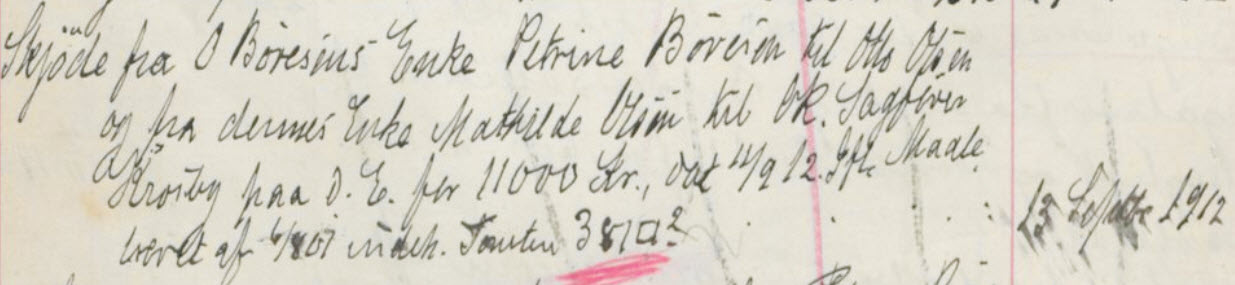 Skjöde fra O Böresens Enke Petrine Böresen til Otto Olsen
og fra dennes Enke Mathilde Olsen til Ok. Sagförer
Krosby paa D. E. for 11000 Kr., dat 11/9 12. Ifl. Maale
brevet af 6/8 07 indeh. Tomten 381 □² 13 Septbr 1912